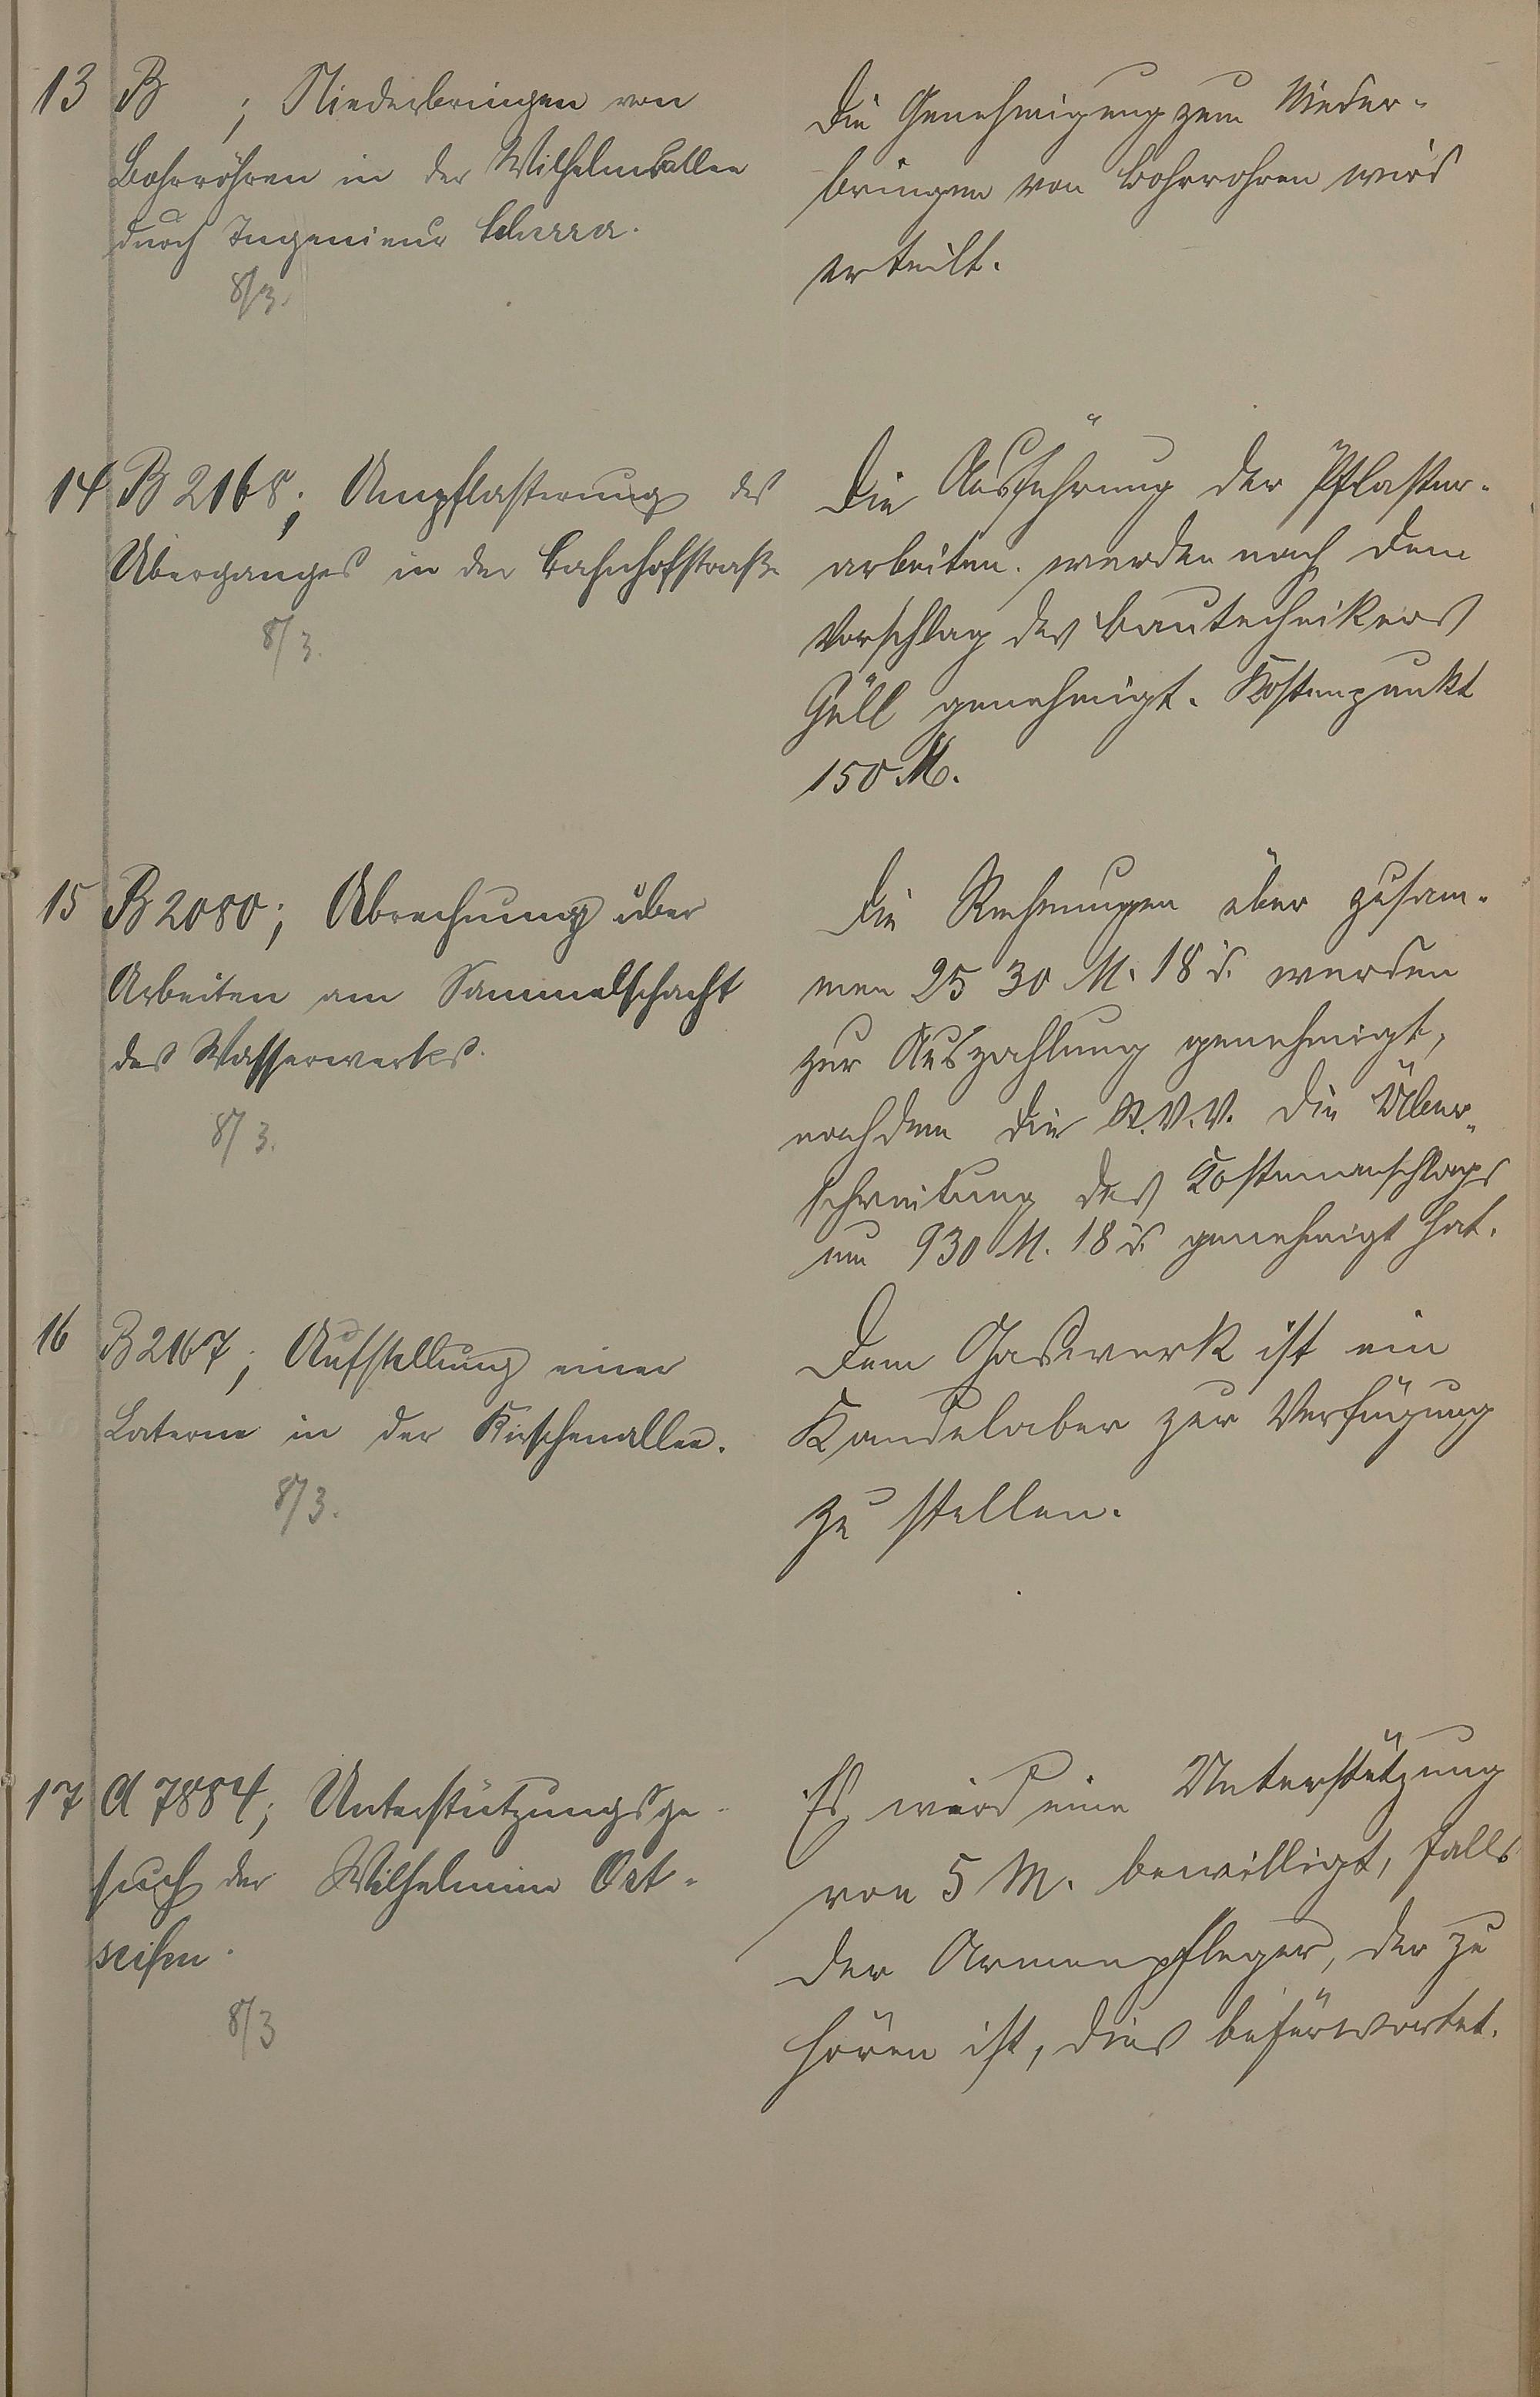 13 B ; Niederbringen von
Bohrröhren in der Wilhelmsallee
durch Ingenieur Scherrer.
8/3.
Die Genehmigung zum Nieder-
bringen von Bohrrohren wird
erteilt.
14 B 2168; Umpflasterung des
Überganges in der Bahnhofstraße
8/3.
Die Ausführung der Pflaster-
arbeiten werden nach dem
Vorschlag des Bautechnikers
Güll genehmigt. Kostenpunkt
150 M.
15 B 2080; Abrechnung über
Arbeiten am Sammelschacht
des Wasserwerkes.
8/3.
Die Rechnungen über zusam-
men 25 30 M. 18 d. werden
zur Auszahlung genehmigt,
nachdem die St.V.V. die Über-
schreitung des Kostenanschlags
um 930 M. 18 d. genehmigt hat.
16 B 2167; Aufstellung einer
Laterne in der Kirschenallee.
8/3.
Dem Gaswerk ist ein
Kandelaber zur Verfügung
zu stellen.
17 A 7884; Unterstützungsge-
such der Wilhelmine Ort-
seifen.
8/3
Es wird eine Unterstützung
von 5 M. bewilligt, falls
der Armenpfleger, der zu
hören ist, dies befürwortet.